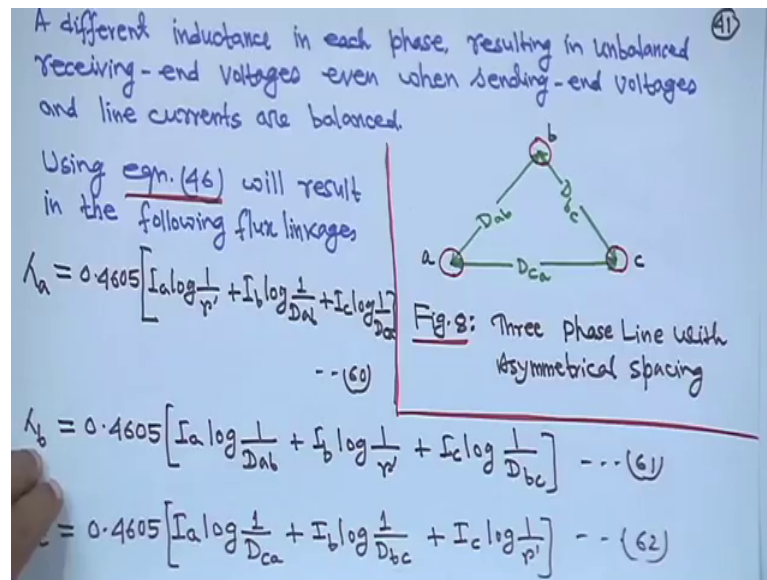 41
A different inductance in each phase, resulting in unbalanced
receiving-end voltages even when sending-end voltages
and line currents are balanced.
Using eqn. (46) will result
in the following flux linkages
λa = 0.4605[Ia log 1/r' + Ib log 1/Dab + Ic log 1/Dca]
--(60)
b
Dab
Dbc
a
Dca
c
Fig.8: Three Phase Line with
Asymmetrical spacing
λb = 0.4605[Ia log 1/Dab + Ib log 1/r' + Ic log 1/Dbc] ---(61)
= 0.4605[Ia log 1/Dca + Ib log 1/Dbc + Ic log 1/r'] --(62)